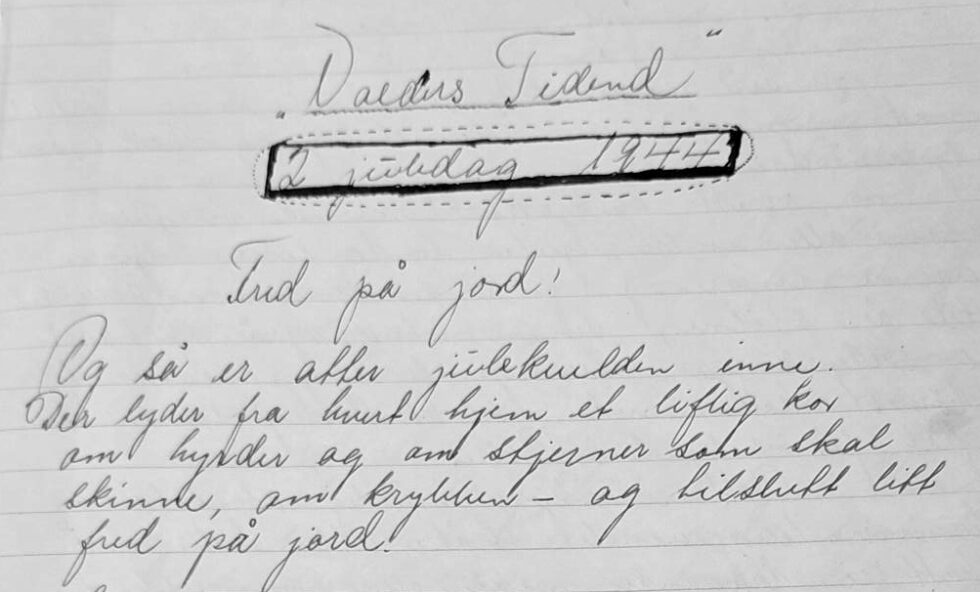 „Valders Tidend"
2 juledag 1944
Fred på jord!
Og så er atter julekvelden inne.
Der lyder fra hvert hjem et liflig kor
om hyrder og om stjerner som skal
skinne, om krybben – og tilslutt litt
fred på jord.